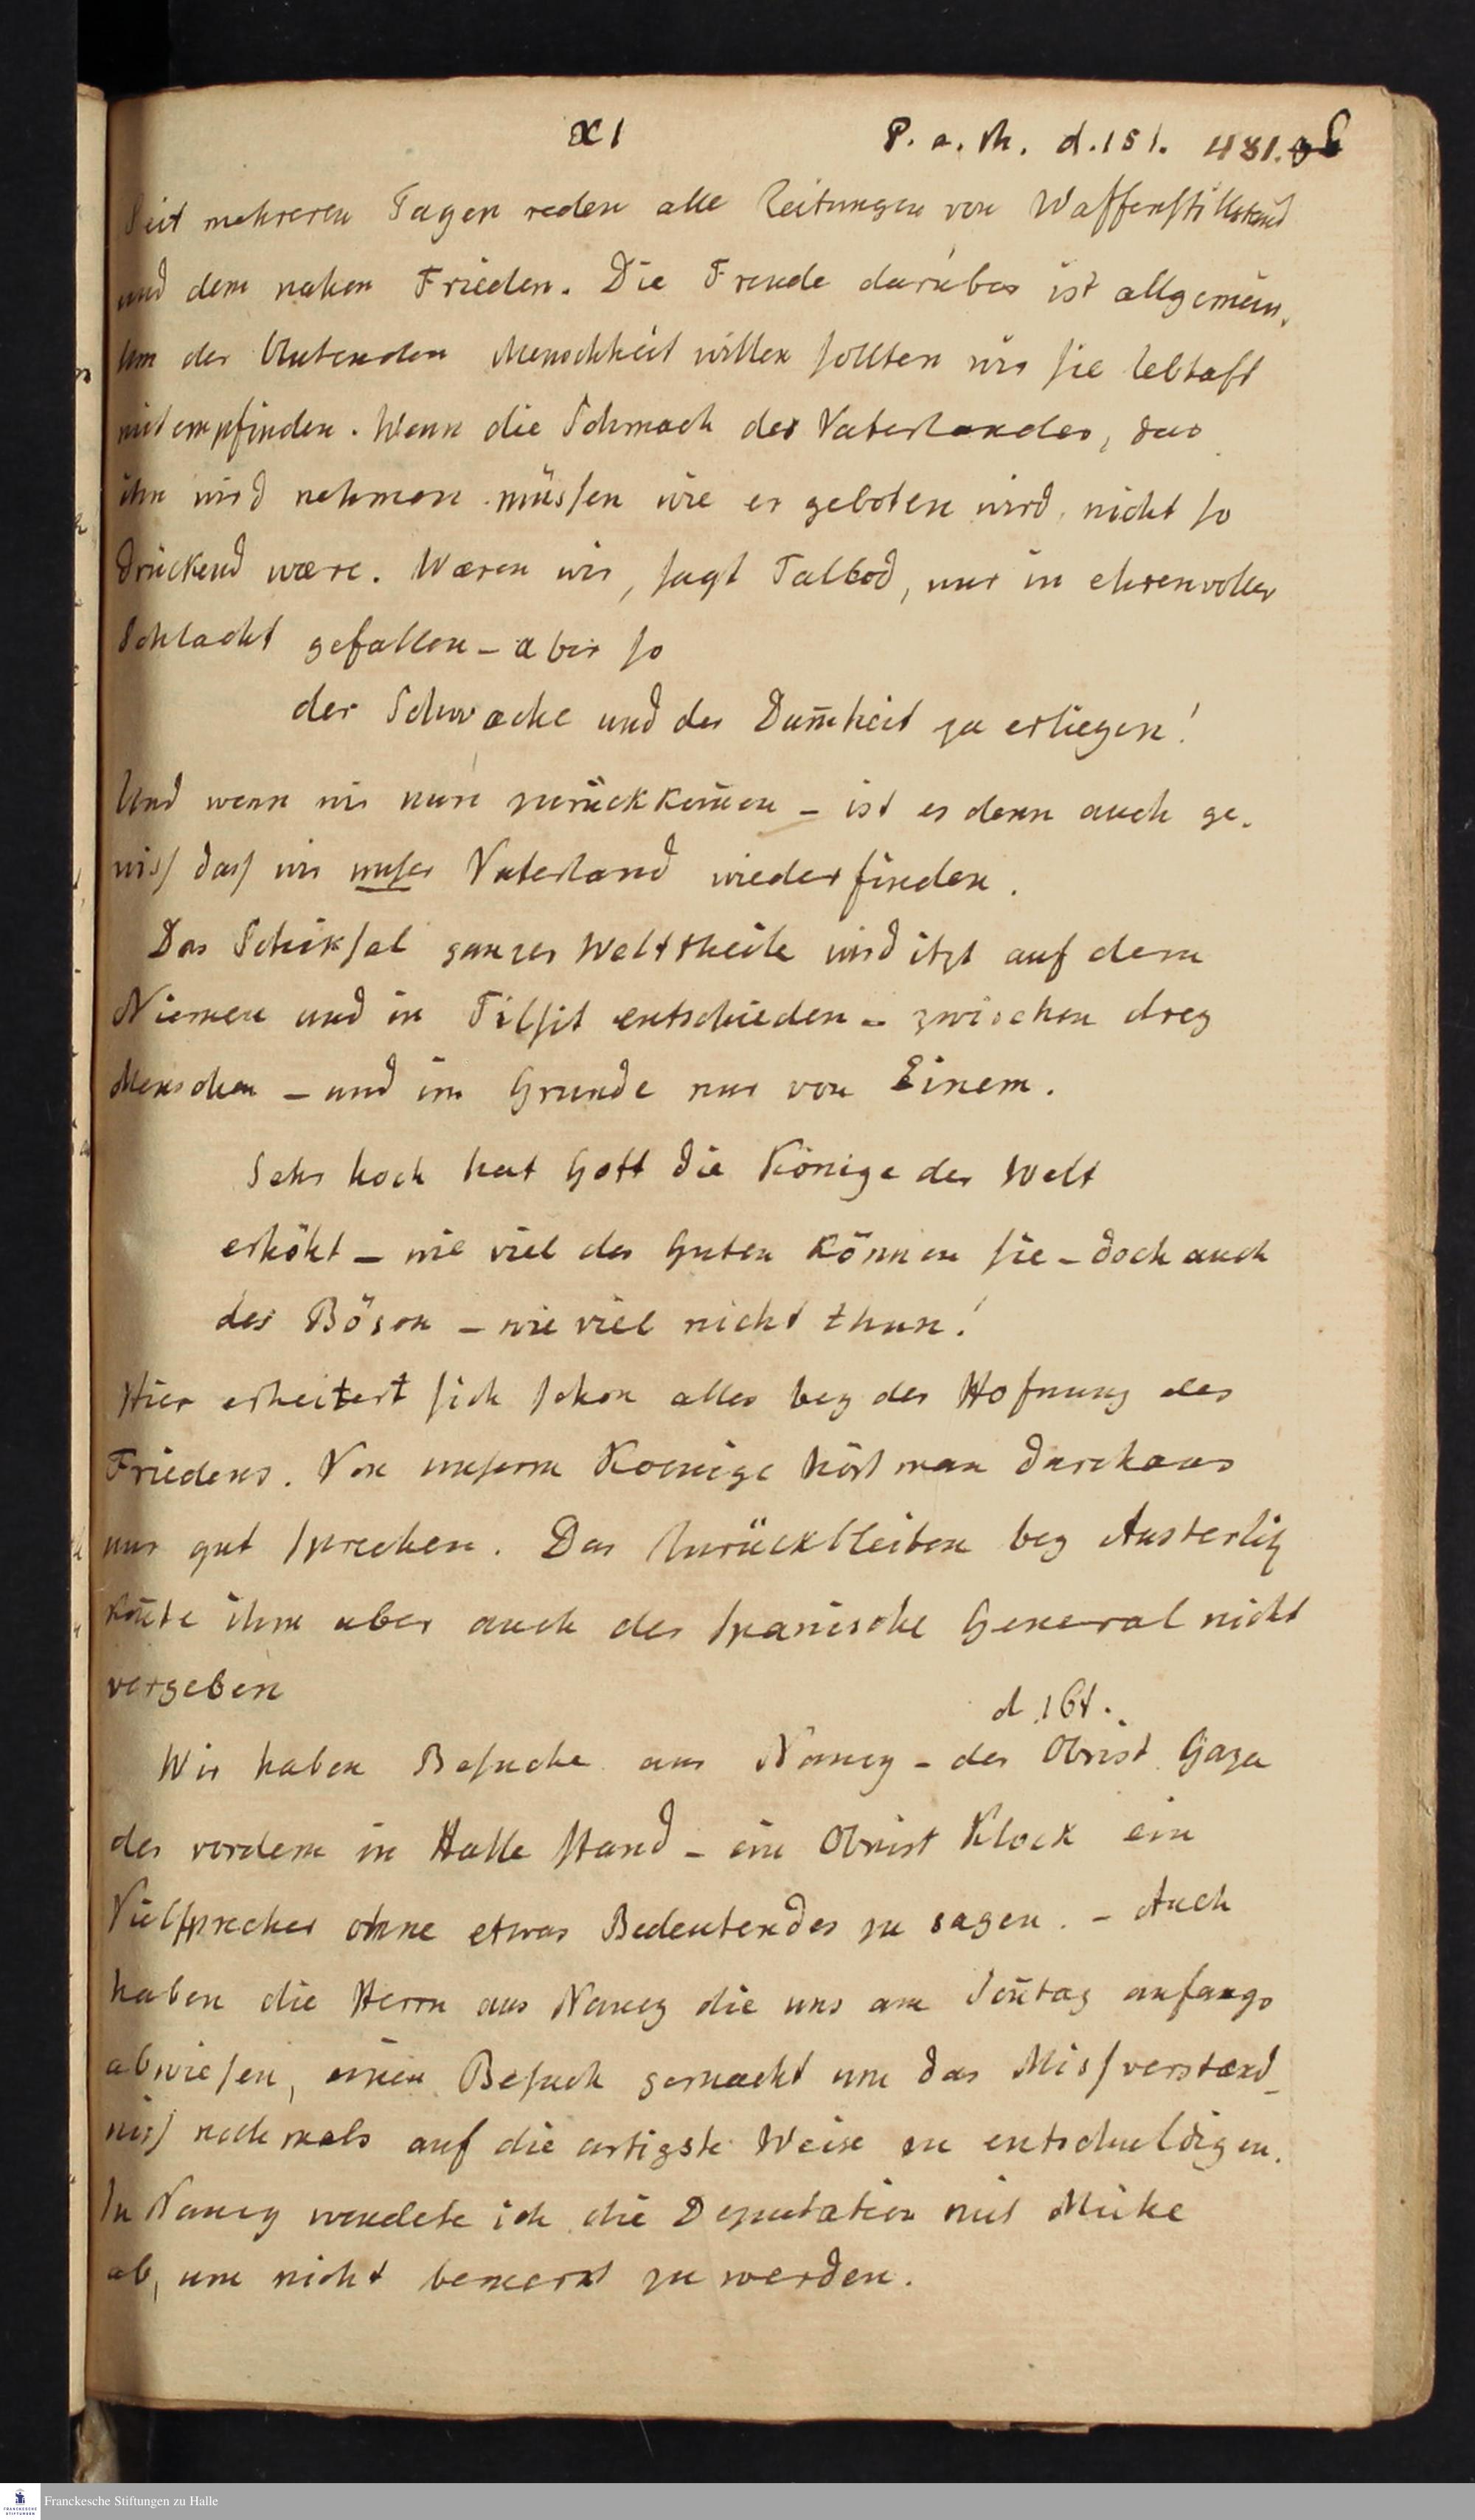 XI P. a. M. d. 15t. 481.
Seit mehreren Tagen reden alle Zeitungen von Waffenstillstand
und dem nahen Frieden. Die Freude darüber ist allgemein.
Um der blutenden Menschheit willen sollten wir sie lebhaft
mitempfinden. Wenn die Schmach des Vaterlandes, das
ihn wird nehmen müssen wie er geboten wird, nicht so
drückend wære. Wæren wir, sagt Talbod, nur in ehrenvoller
Schlacht gefallen – aber so
der Schwæche und der Dum̄heit zu erliegen!
Und wenn wir nun zurückkom̄en – ist es denn auch ge-
wiss dass wir unser Vaterland wiederfinden.
Das Schiksal ganzer Welttheile wird itzt auf dem
Niemen und in Tilsit entschieden – zwischen drey
Menschen – und im Grunde nur von Einem.
Sehr hoch hat Gott die Könige der Welt
erhöht – wie viel des Guten können sie – doch auch
des Bösen – wie viel nicht thun!
Hier erheitert sich schon alles bey der Hofnung des
Friedens. Von unserm Koenige hört man durchaus
nur gut sprechen. Das Zurückbleiben bey Austerlitz
kon̄te ihm aber auch der spanische General nicht
vergeben
d. 16t.
Wir haben Besuche aus Nancy – der Obrist Gaza
der vordem in Halle stand – ein Obrist Klock ein
Vielsprecher ohne etwas Bedeutendes zu sagen. – Auch
haben die Herrn aus Nancy die uns am Son̄tag anfangs
abwiesen, einen Besuch gemacht um das Missverstænd-
niss nochmals auf die artigste Weise zu entschuldigen.
In Nancy wendete ich die Deputation mit Mühe
ab, um nicht bemerkt zu werden.
Franckesche Stiftungen zu Halle